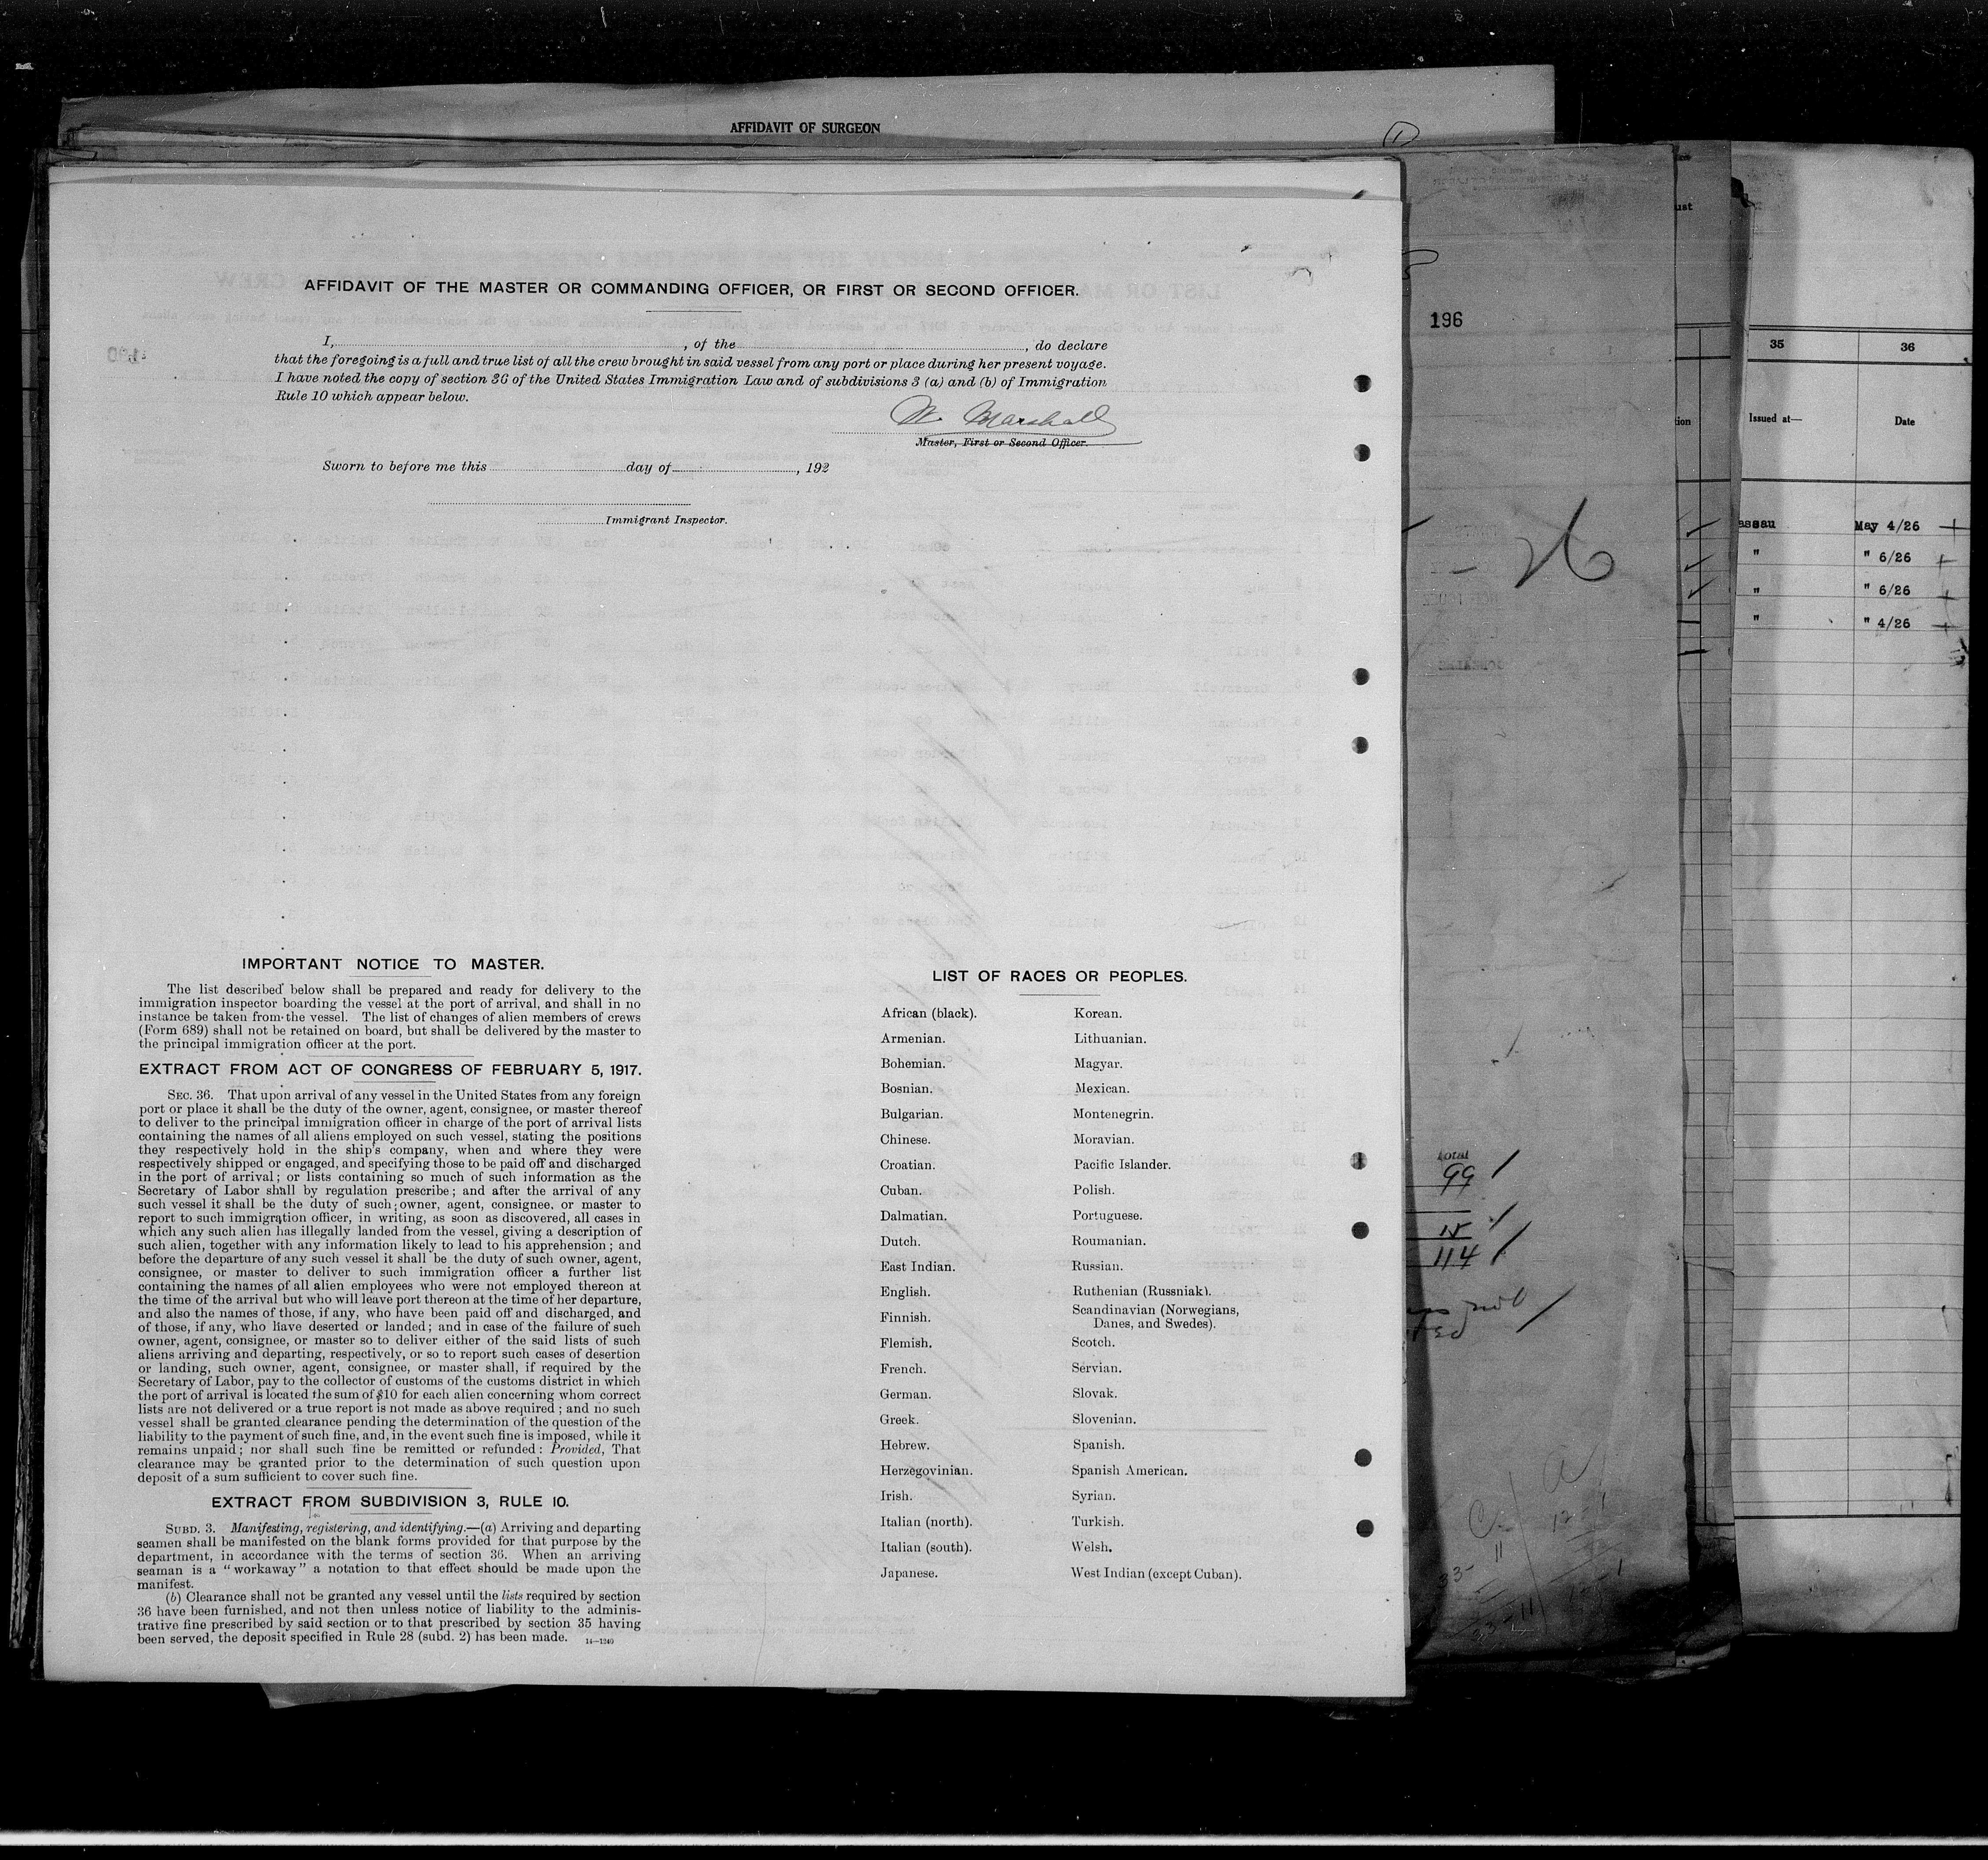 AFFIDAVIT OF SURGEON
1
AFFIDAVIT OF THE MASTER OR COMMANDING OFFICER, OR FIRST OR SECOND OFFICER.
I, , of the , do declare
that the foregoing is a full and true list of all the crew brought in said vessel from any port or place during her present voyage.
I have noted the copy of section 36 of the United States Immigration Law and of subdivisions 3 (a) and (b) of Immigration
Rule 10 which appear below.
W. Marshall
Master, First or Second Officer.
Sworn to before me this day of , 192
Immigrant Inspector.
IMPORTANT NOTICE TO MASTER.
The list described below shall be prepared and ready for delivery to the
immigration inspector boarding the vessel at the port of arrival, and shall in no
instance be taken from the vessel. The list of changes of alien members of crews
(Form 689) shall not be retained on board, but shall be delivered by the master to
the principal immigration officer at the port.
EXTRACT FROM ACT OF CONGRESS OF FEBRUARY 5, 1917.
SEC. 36. That upon arrival of any vessel in the United States from any foreign
port or place it shall be the duty of the owner, agent, consignee, or master thereof
to deliver to the principal immigration officer in charge of the port of arrival lists
containing the names of all aliens employed on such vessel, stating the positions
they respectively hold in the ship's company, when and where they were
respectively shipped or engaged, and specifying those to be paid off and discharged
in the port of arrival; or lists containing so much of such information as the
Secretary of Labor shall by regulation prescribe; and after the arrival of any
such vessel it shall be the duty of such owner, agent, consignee, or master to
report to such immigration officer, in writing, as soon as discovered, all cases in
which any such alien has illegally landed from the vessel, giving a description of
such alien, together with any information likely to lead to his apprehension; and
before the departure of any such vessel it shall be the duty of such owner, agent,
consignee, or master to deliver to such immigration officer a further list
containing the names of all alien employees who were not employed thereon at
the time of the arrival but who will leave port thereon at the time of her departure,
and also the names of those, if any, who have been paid off and discharged, and
of those, if any, who have deserted or landed; and in case of the failure of such
owner, agent, consignee, or master so to deliver either of the said lists of such
aliens arriving and departing, respectively, or so to report such cases of desertion
or landing, such owner, agent, consignee, or master shall, if required by the
Secretary of Labor, pay to the collector of customs of the customs district in which
the port of arrival is located the sum of $10 for each alien concerning whom correct
lists are not delivered or a true report is not made as above required; and no such
vessel shall be granted clearance pending the determination of the question of the
liability to the payment of such fine, and, in the event such fine is imposed, while it
remains unpaid; nor shall such fine be remitted or refunded: Provided, That
clearance may be granted prior to the determination of such question upon
deposit of a sum sufficient to cover such fine.
EXTRACT FROM SUBDIVISION 3, RULE 10.
SUBD. 3. Manifesting, registering, and identifying.—(a) Arriving and departing
seamen shall be manifested on the blank forms provided for that purpose by the
department, in accordance with the terms of section 36. When an arriving
seaman is a "workaway" a notation to that effect should be made upon the
manifest.
(b) Clearance shall not be granted any vessel until the lists required by section
36 have been furnished, and not then unless notice of liability to the adminis-
trative fine prescribed by said section or to that prescribed by section 35 having
been served, the deposit specified in Rule 28 (subd. 2) has been made. 14—1240
LIST OF RACES OR PEOPLES.
African (black). Korean.
Armenian. Lithuanian.
Bohemian. Magyar.
Bosnian. Mexican.
Bulgarian. Montenegrin.
Chinese. Moravian.
Croatian. Pacific Islander.
Cuban. Polish.
Dalmatian. Portuguese.
Dutch. Roumanian.
East Indian. Russian.
English. Ruthenian (Russniak).
Finnish. Scandinavian (Norwegians,
Danes, and Swedes).
Flemish. Scotch.
French. Servian.
German. Slovak.
Greek. Slovenian.
Hebrew. Spanish.
Herzegovinian. Spanish American.
Irish. Syrian.
Italian (north). Turkish.
Italian (south). Welsh.
Japanese. West Indian (except Cuban).
196
- 26
total
99
15
114
not
35 36
Issued at— Date
assau May 4/26
" " 6/26
" " 6/26
" " 4/26